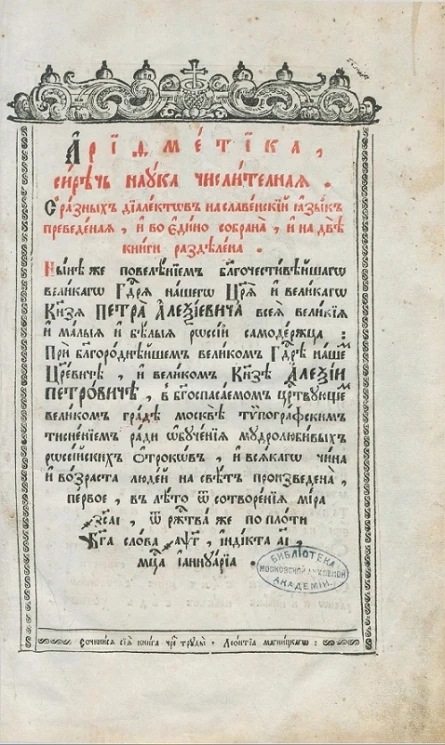 Арїѳме́тїка,
сирѣ́чь наꙋ́ка числи́телная.
С̾ ра́зныхъ дїале́ктѡвъ на слаⷡ҇енскїй ꙗзы́къ
преведе́ная, и҆ во є҆ди́но собрана̀, и҆ на двѣ̀
кни́ги раздѣле́на.
Ны́нѣ же повелѣ́нїемъ благочести́вѣйшагѡ
вели́кагѡ Гдⷭ҇ря на́шегѡ Цр҃я̀ и҆ вели́кагѡ
Кн҃зя ПЕТРА̀ АЛЕѮІ́ЕВИЧА всея̀ вели́кїя
и҆ ма́лыя и҆ бѣ́лыя рѡссі́и самоде́ржца:
Прѝ благоро́днѣйшемъ вели́комъ Гдⷭ҇рѣ на́шемъ
Цр҃е́вичѣ, и҆ вели́комъ Кн҃зѣ АЛЕѮІ́И
ПЕТРО́ВИЧѢ, в̾ бг҃оспаса́емомъ црⷭ҇твꙋ́ющемъ
вели́комъ гра́дѣ москвѣ̀ тѷпогра́фскимъ
тисне́нїемъ ра́ди ѡ҆бꙋче́нїя мꙋдролюби́выхъ
рѡссі́йскихъ ѻ҆́трокѡвъ, и҆ вся́кагѡ чи́на
и҆ во́зраста люде́й на свѣ́тъ произведена̀,
пе́рвое, в̾ лѣ́то ѿ сотворе́нїя мі́ра
҂зса҃і, ѿ рж҇тва̀ же по пло́ти
Бг҃а сло́ва ҂аѱ҃г, и҆нді́кта а҃і,
мц҇а і҆аннꙋа́рїа.
БИБЛІОТЕКА
МОСКОВСКОЙ ДУХОВНОЙ
АКАДЕМІИ.
Сочини́ся сїѧ̀ кни́га чрⷥ҇ трꙋды̀ Лео́нтїа магни́цкагѡ: